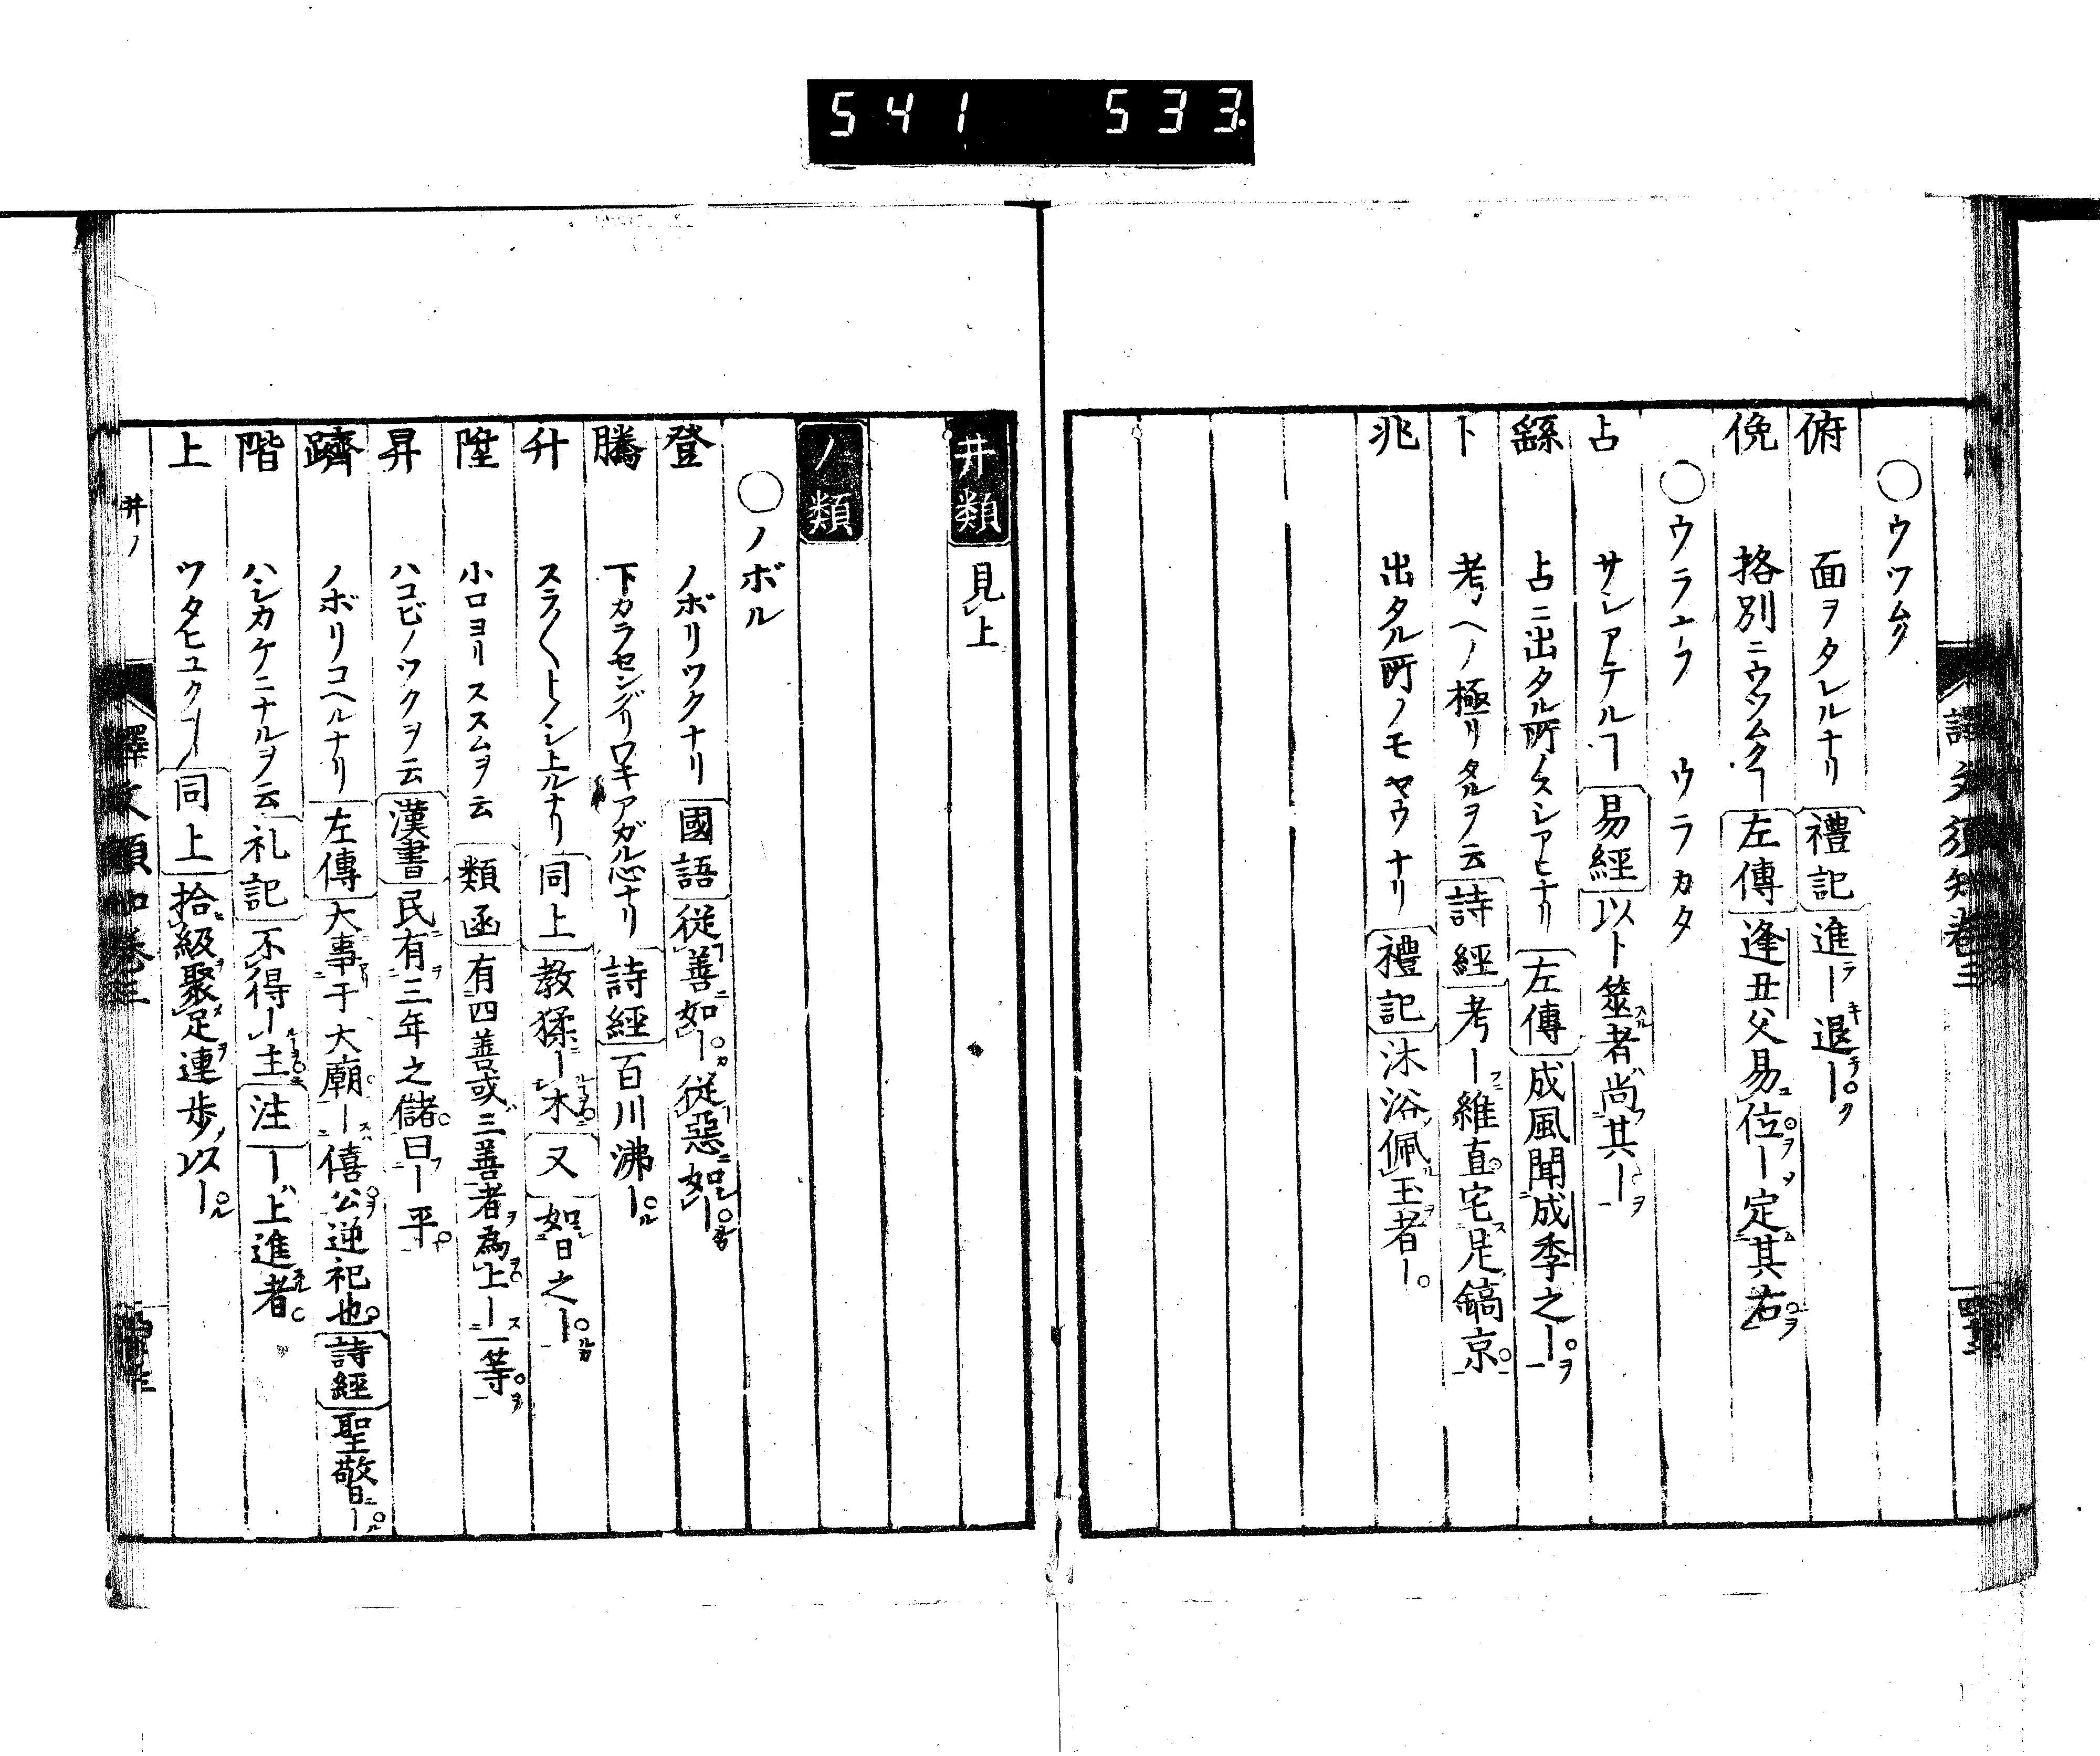 541 533
○ウツムク
俯 面ヲタレルナリ 禮記 進テー退キテー。ク
俛 格別ニウツムクヿ 左傳 逢丑父易位ー定其右
○ウラナフ ウラカタ
占 サシアテルヿ 易經 以卜筮者尚其ー
繇 占ニ出タル所ノスシアヒナリ 左傳 成風聞成季之ー
卜 考ヘノ極リタルヲ云 詩經 考ー維直宅足鎬京
兆 出タル所ノモヤウナリ 禮記 沐浴佩玉者ー
井類 見上
ノ類
○ノボル
登 ノボリツクナリ 國語 從善如ー從惡如ー
騰 下カラセングリワキアガル心ナリ 詩經 百川沸ー
升 スラ〱トノシ上ルナリ 同上 教猱ー木 又 如日之ー
陞 小口ヨリススムヲ云 類函 有四善或三善者爲上ー一等
昇 ハコビノツクヲ云 漢書 民有三年之儲曰ー平
躋 ノボリコヘルナリ 左傳 大事于大廟ー僖公逆祀也 詩經 聖敬日ー
階 ハシカケニナルヲ云 礼記 不得ー主 注 ー上進者
上 ツタヒユクヿ 同上 拾級聚足連歩ー
井ノ
譯文須知卷三